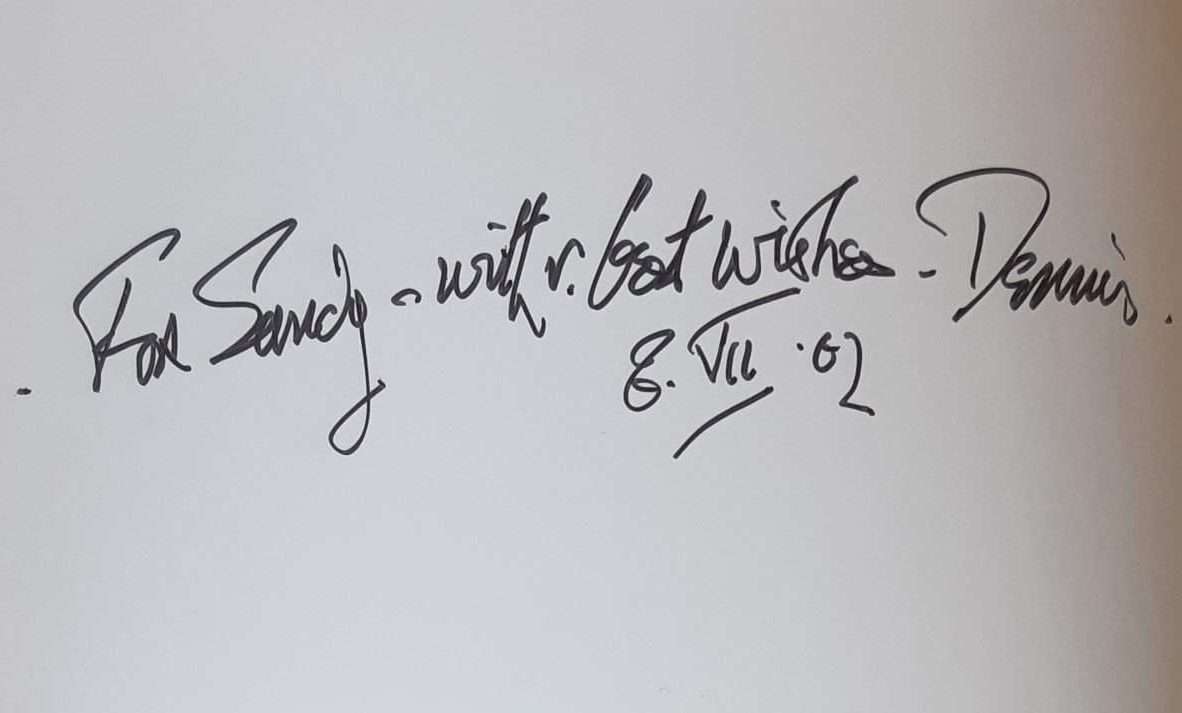 . For Sandy - with v. best wishes - Dennis.
8. VII .02